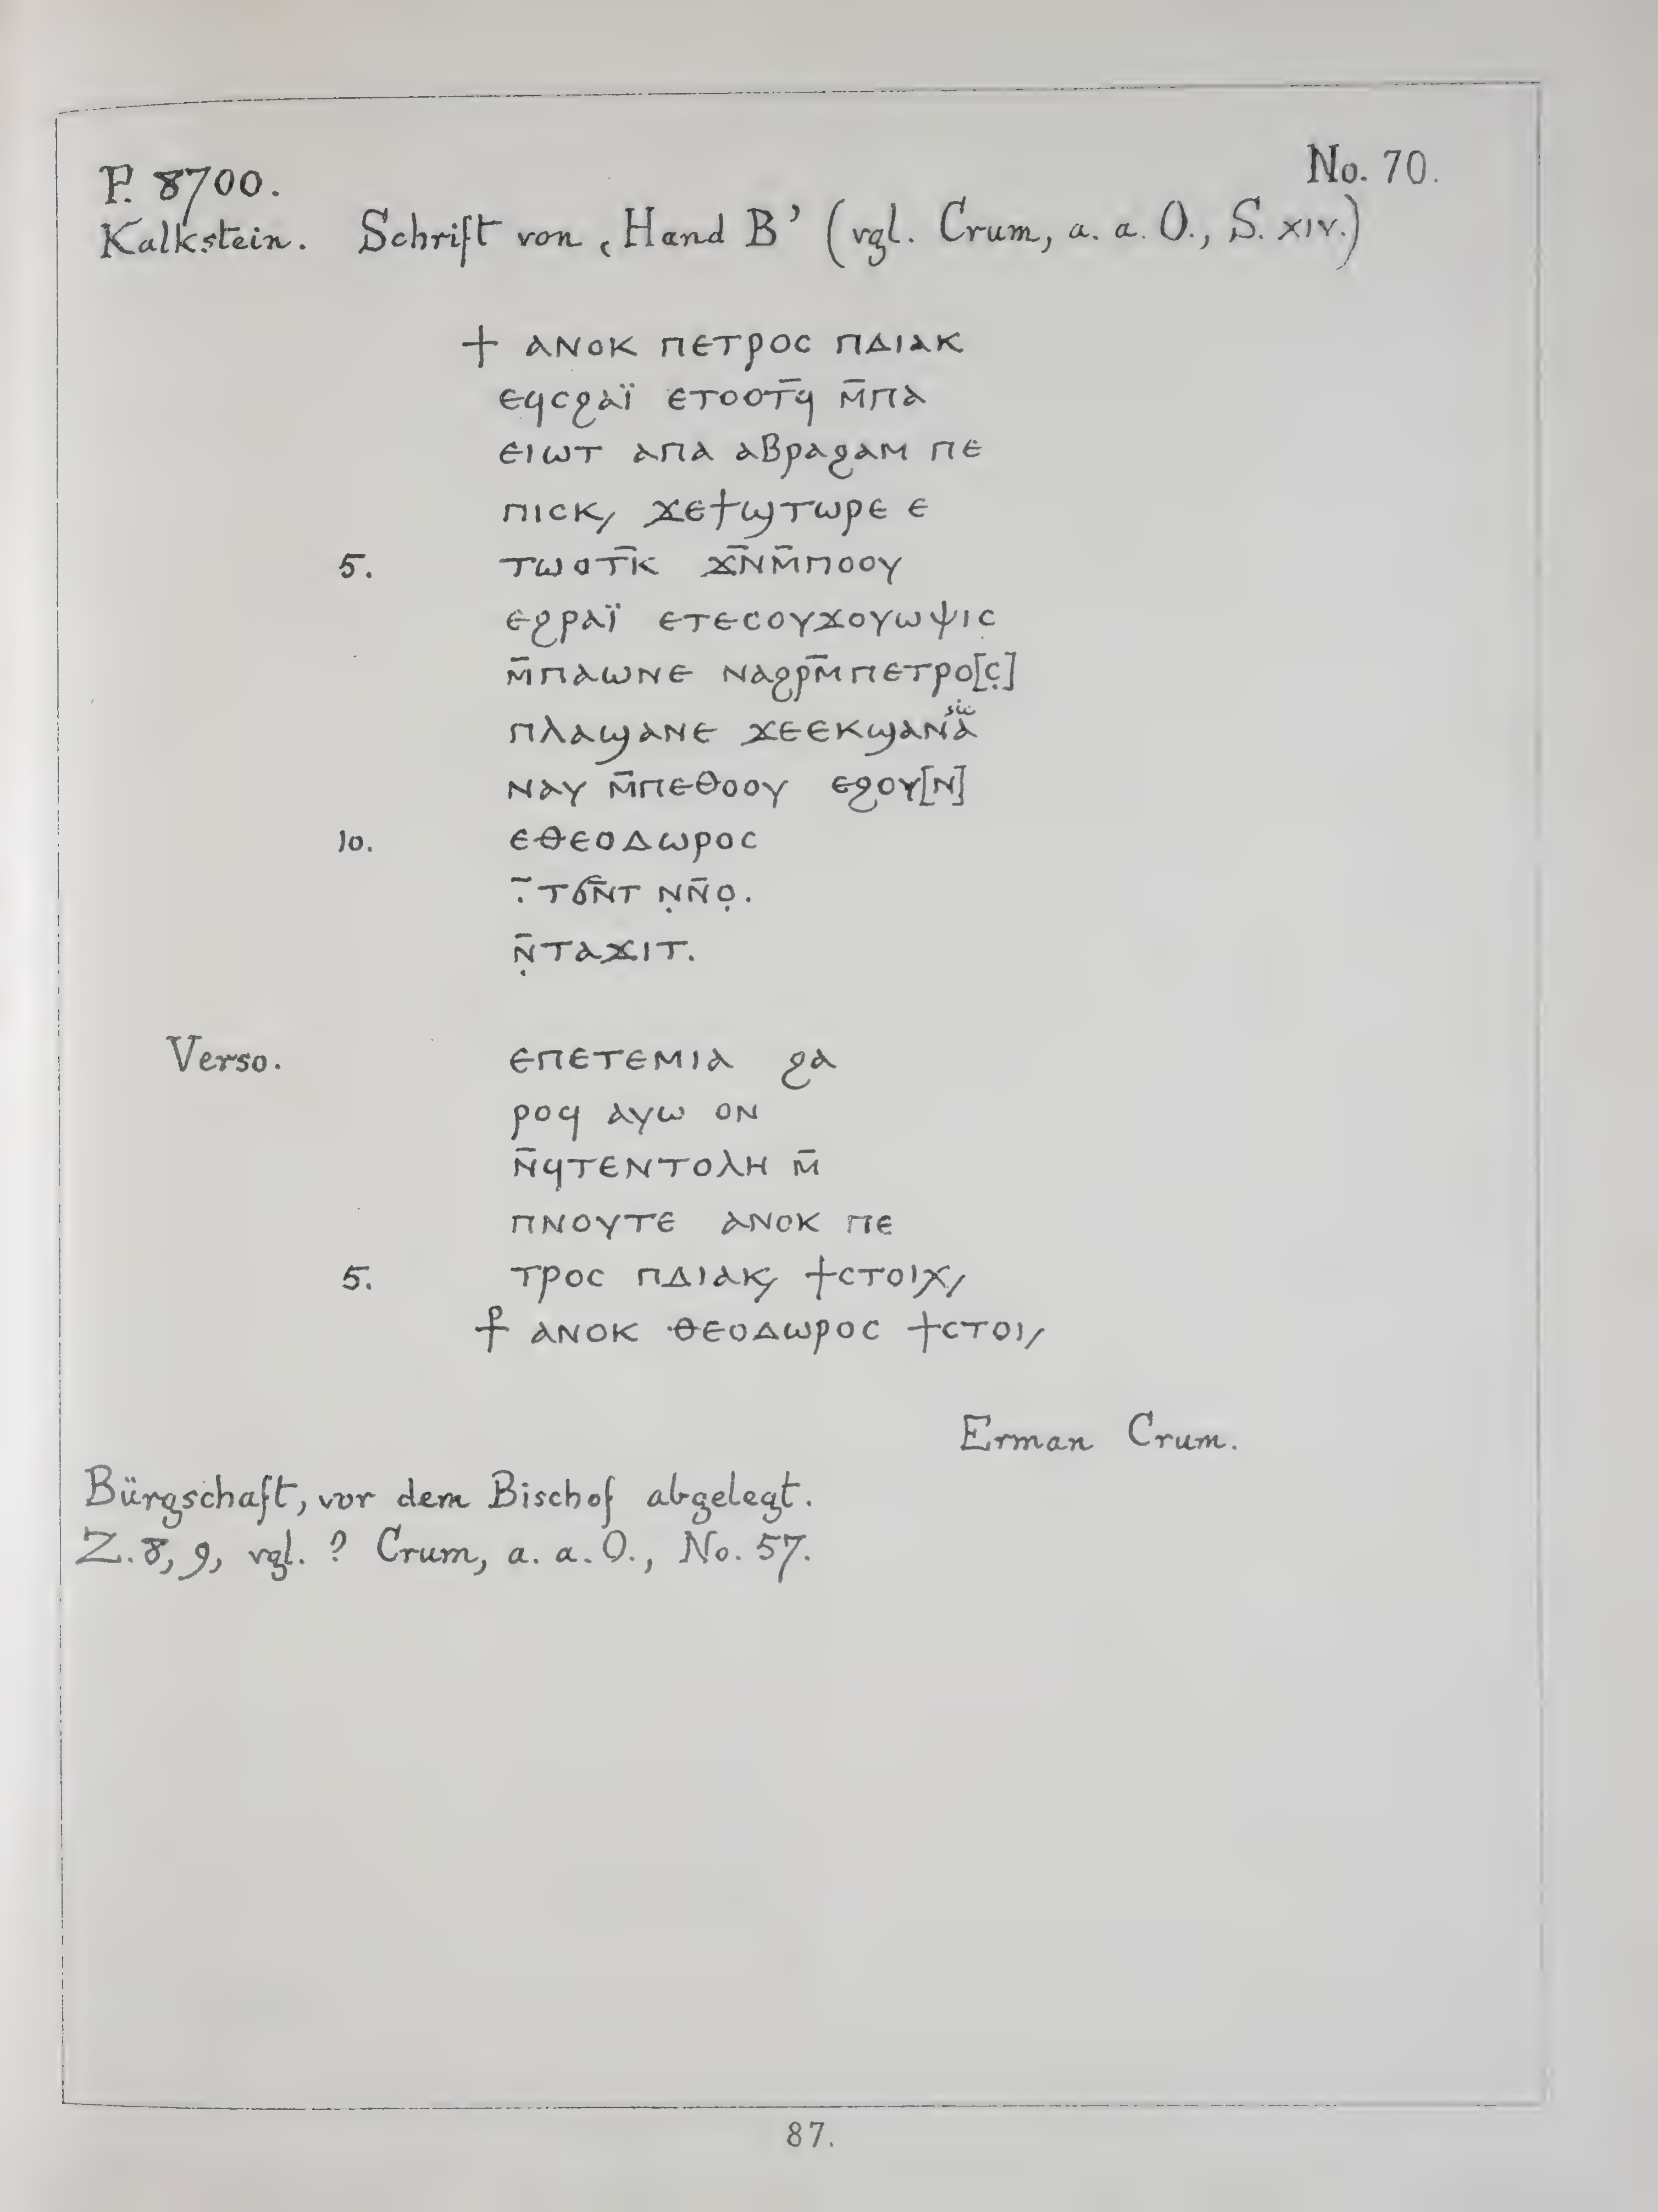 P. 8700.
No. 70.
Kalkstein. Schrift von ‚Hand B’ (vgl. Crum, a. a. O., S. XIV.)
ϯ ⲁⲛⲟⲕ ⲡⲉⲧⲣⲟⲥ ⲡⲇⲓⲁⲕ
ⲉϥⲥϩⲁⲓ̈ ⲉⲧⲟⲟⲧ̄ϥ ⲙ̄ⲡⲁ
ⲉⲓⲱⲧ ⲁⲡⲁ ⲁⲃⲣⲁϩⲁⲙ ⲡⲉ
ⲡⲓⲥⲕ/ ϫⲉϯϣⲧⲱⲣⲉ ⲉ
5. ⲧⲱⲟⲧ̄ⲕ ϫ̄ⲛⲙ̄ⲡⲟⲟⲩ
ⲉϩⲣⲁⲓ̈ ⲉⲧⲉⲥⲟⲩϫⲟⲩⲱⲯⲓⲥ
ⲙ̄ⲡⲁⲱⲛⲉ ⲛⲁϩⲣⲙ̄ⲡⲉⲧⲣⲟ[ⲥ̣]
ⲡⲗⲁϣⲁⲛⲉ ϫⲉⲉⲕϣⲁⲛⲁ̄ sic
ⲛⲁⲩ ⲙ̄ⲡⲉⲑⲟⲟⲩ ⲉϩⲟⲩ[ⲛ]
10. ⲉⲑⲉⲟⲇⲱⲣⲟⲥ
.̄ⲧϭⲛ̄ⲧ ⲛ̣ⲛ̄ⲟ̣.
ⲛ̣̄ⲧⲁϫⲓⲧ.
Verso. ⲉⲡⲉⲧⲉⲙⲓⲁ ϩⲁ
ⲣⲟϥ ⲁⲩⲱ ⲟⲛ
ⲛ̄ϥⲧⲉⲛⲧⲟⲗⲏ ⲙ̄
ⲡⲛⲟⲩⲧⲉ ⲁⲛⲟⲕ ⲡⲉ
5. ⲧⲣⲟⲥ ⲡⲇⲓⲁⲕ/ ϯⲥⲧⲟⲓⲭ/
⳨ ⲁⲛⲟⲕ ⲑⲉⲟⲇⲱⲣⲟⲥ ϯⲥⲧⲟⲓ/
Erman Crum.
Bürgschaft, vor dem Bischof abgelegt.
Z. 8, 9, vgl. ? Crum, a. a. O., No. 57.
87.